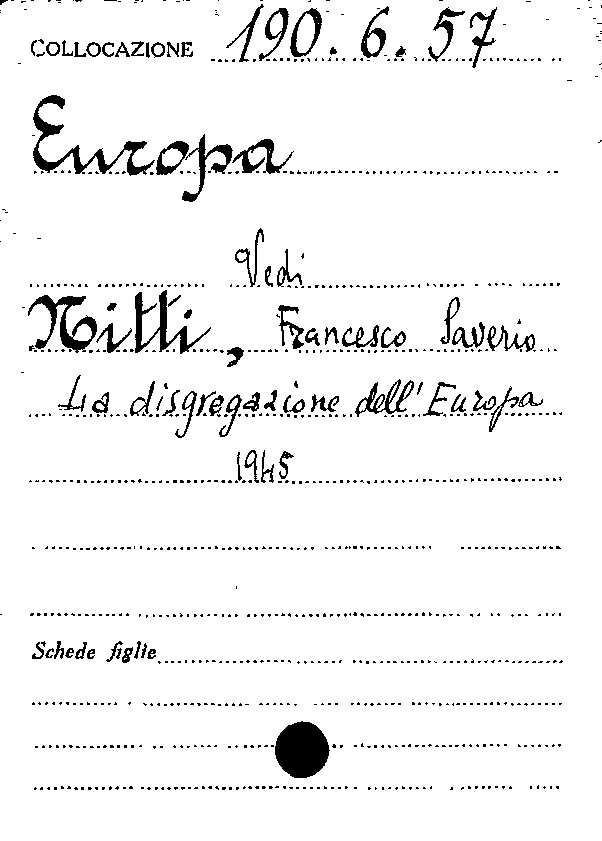 COLLOCAZIONE 190.6.57
Europa
Vedi
Nitti, Francesco Saverio
La disgregazione dell'Europa
1945
Schede figlie